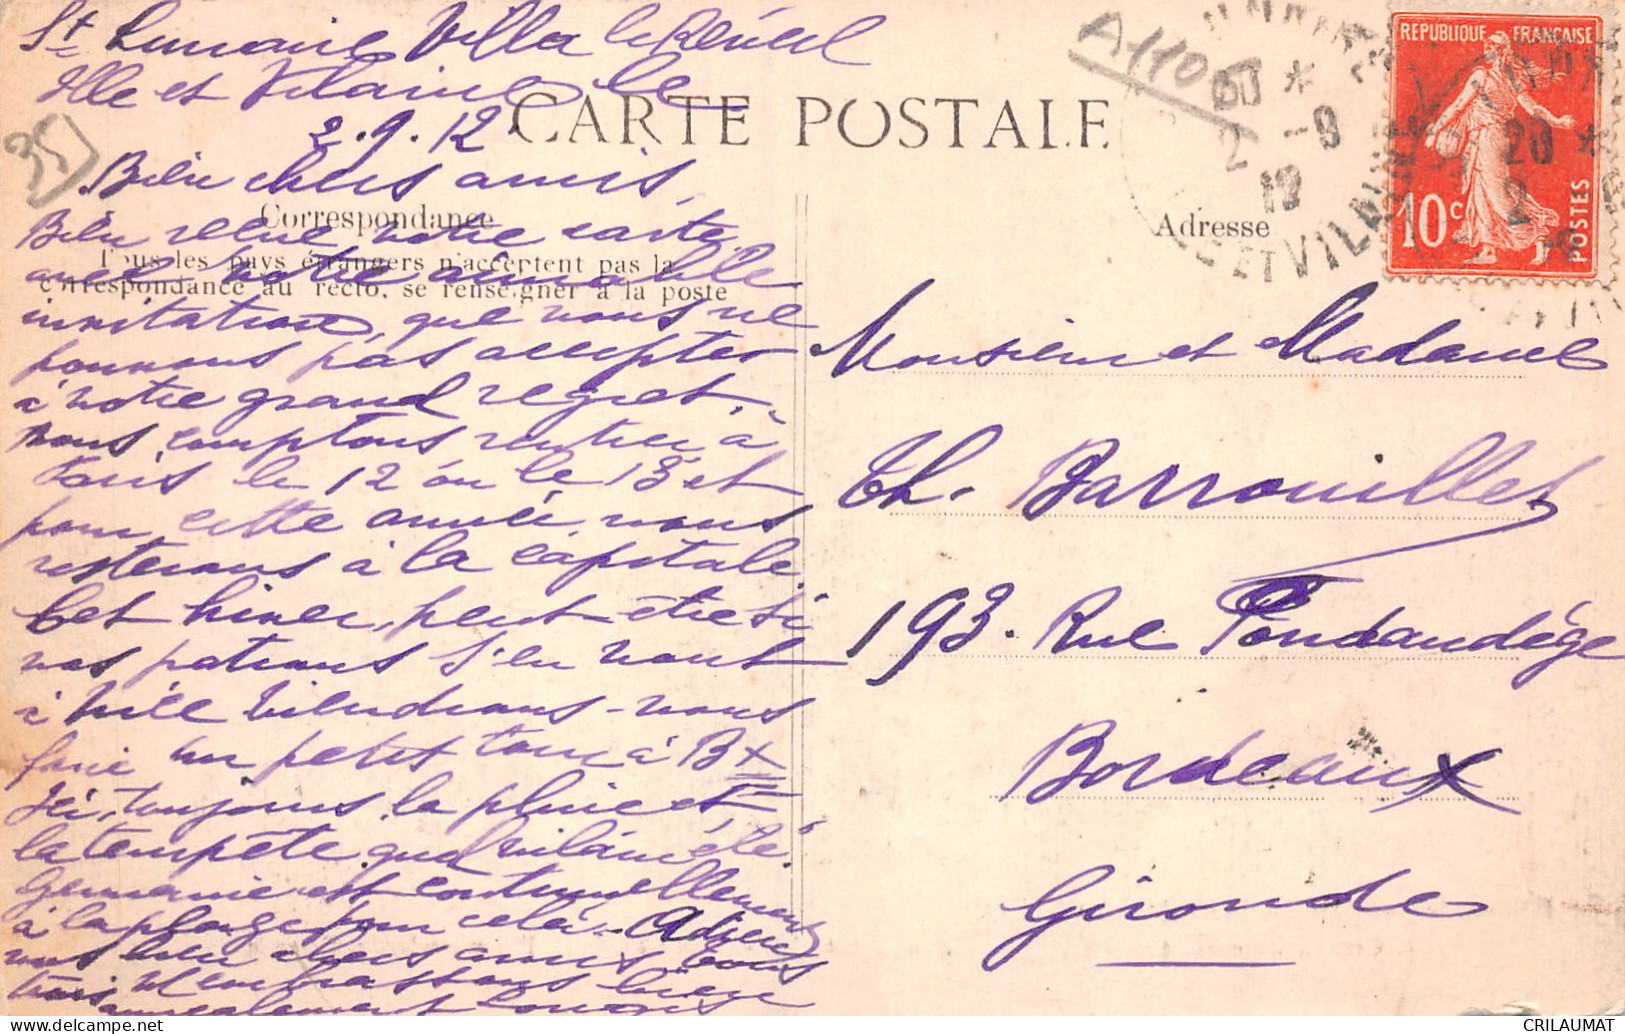 St Lunaire Villa le Réveil
Ille et Vilaine le
2.9.12
35
A1106
CARTE POSTALE
Bien chers amis,
Correspondance
Bien reçue votre carte
Tous les pays étrangers n'acceptent pas la
avec votre aimable
correspondance au recto, se renseigner à la poste
invitation, que nous ne
pouvons pas accepter
à notre grand regret.
nous comptons rentrer à
Paris le 12 ou le 13 et
pour cette année nous
resterons à la capitale
cet hiver, peut-être si
nos patrons s'en vont
à Nice viendrons-nous
faire un petit tour à Bx
Ici, toujours la pluie et
la tempête quel vilain été.
Germanie est continuellement
à la plage pour cela. Adieu
mes bien chers amis tous
trois embrassons
amicalement tous
RÉPUBLIQUE FRANÇAISE
10c
POSTES
20 *
2 -9
12
ET VILAINE
Adresse
Monsieur et Madame
Th. Barrouillet
193. Rue Pondaudège
Bordeaux
Gironde
CRILAUMAT